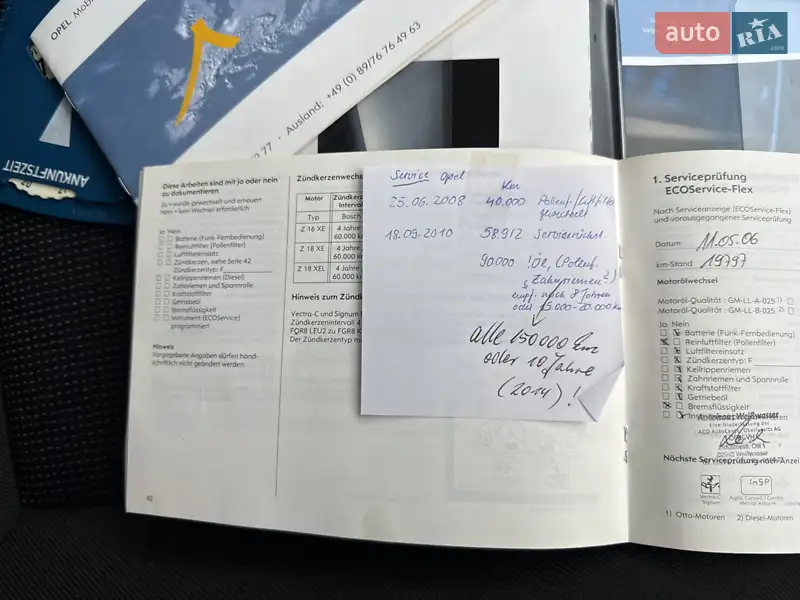 OPEL Mobil
Ausland: +49 (0) 89/76 76 49 63
77
ANKUNFTSZEIT
auto RIA .com
Diese Arbeiten sind mit ja oder nein
zu dokumentieren
Ja = wurde gewechselt und erneuert
Nein = kein Wechsel erforderlich
Ja Nein
Batterie (Funk-Fernbedienung)
Reinluftfilter (Pollenfilter)
Luftfiltereinsatz
Zündkerzen, siehe Seite 42
Zündkerzentyp: F
Keilrippenriemen (Diesel)
Zahnriemen und Spannrolle
Kraftstofffilter
Getriebeöl
Bremsflüssigkeit
Instrument (ECOService)
programmiert
Hinweis
Vorgegebene Angaben dürfen hand-
schriftlich nicht geändert werden.
42
Zündkerzenwechs
Motor Zündkerze
Interval
Typ Bosch
Z 16 XE 4 Jahre
60.000 k
Z 18 XE 4 Jahre
60.000 k
Z 18 XEL 4 Jahre
60.000 k
Hinweis zum Zündk
Vectra-C und Signum
Zündkerzenintervall 4
FQR8 LEU2 zu FGR8 K
Der Zündkerzentyp m
Service Opel
Km
25.06.2008 40.000 Pollenf./Luftfilter
gewechselt
18.09.2010 58.912 Servicerückst.
90000 !Öl, (Pollenf.
Zahnriemen?)
empf. nach 8 Jahren
oder
alle 150000 km
oder 10 Jahre
(2014) !
1. Serviceprüfung
ECOService-Flex
Nach Serviceanzeige (ECOService-Flex)
und vorausgegangener Serviceprüfung
Datum 11.05.06
km-Stand 19797
Motorölwechsel
Motoröl-Qualität : GM-LL-A-025 1)
Motoröl-Qualität : GM-LL-B-025 2)
Ja Nein
Batterie (Funk-Fernbedienung)
Reinluftfilter (Pollenfilter)
Luftfiltereinsatz
Zündkerzentyp: F
Keilrippenriemen
Zahnriemen und Spannrolle
Kraftstofffilter
Getriebeöl
Bremsflüssigkeit
Autohaus Weißwasser
Eine Niederlassung der
Nächste Serviceprüfung nach Anzei
InSP
Vectra-C
Signum
1) Otto-Motoren 2) Diesel-Motoren